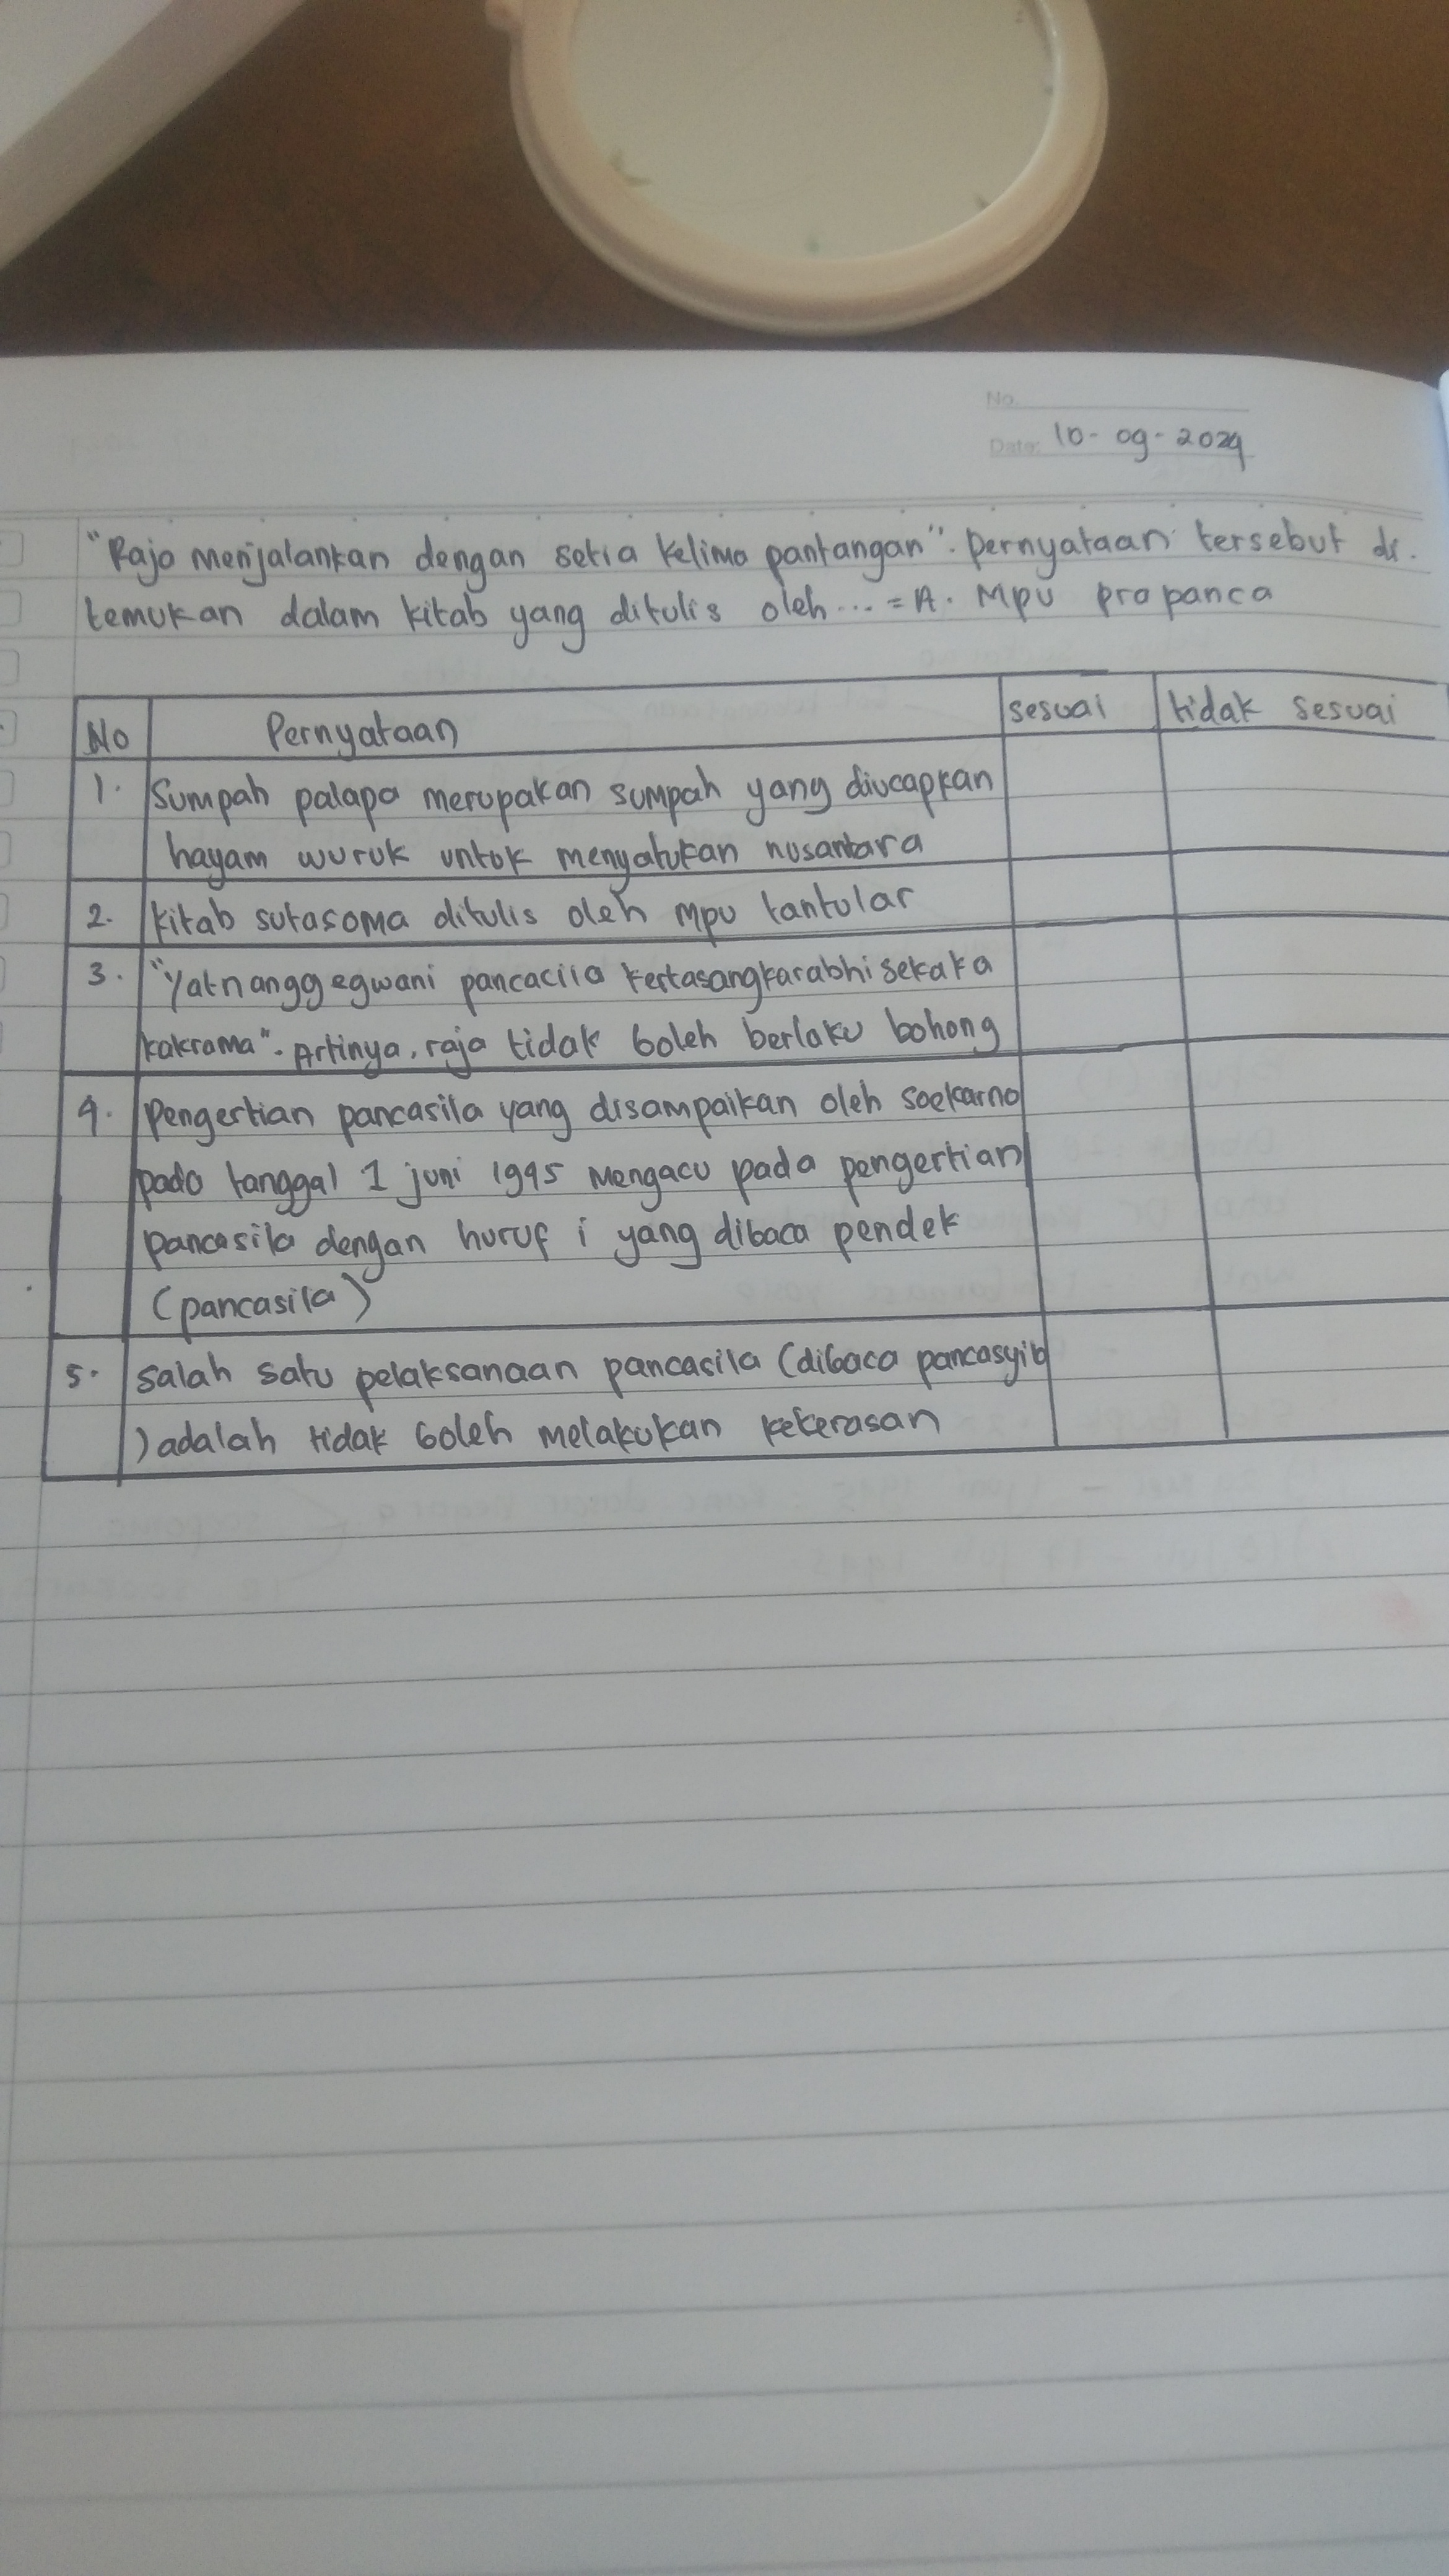 No.
Date: 10-09-2024
"Raja menjalankan dengan setia kelima pantangan". Pernyataan tersebut di.
temukan dalam kitab yang ditulis oleh... = A. Mpu propanca
No Pernyataan sesuai tidak sesuai
1. Sumpah palapa merupakan sumpah yang diucapkan
hayam wuruk untuk menyatukan nusantara
2. kitab sutasoma ditulis oleh mpu tantular
3. "Yatnanggegwani pancacila kertasangkarabhisekaka
kakrama". Artinya, raja tidak boleh berlaku bohong
4. pengertian pancasila yang disampaikan oleh soekarno
pada tanggal 1 juni 1945 mengacu pada pengertian
pancasila dengan huruf i yang dibaca pendek
(pancasila)
5. salah satu pelaksanaan pancasila (dibaca pancasyila
) adalah tidak boleh melakukan kekerasan